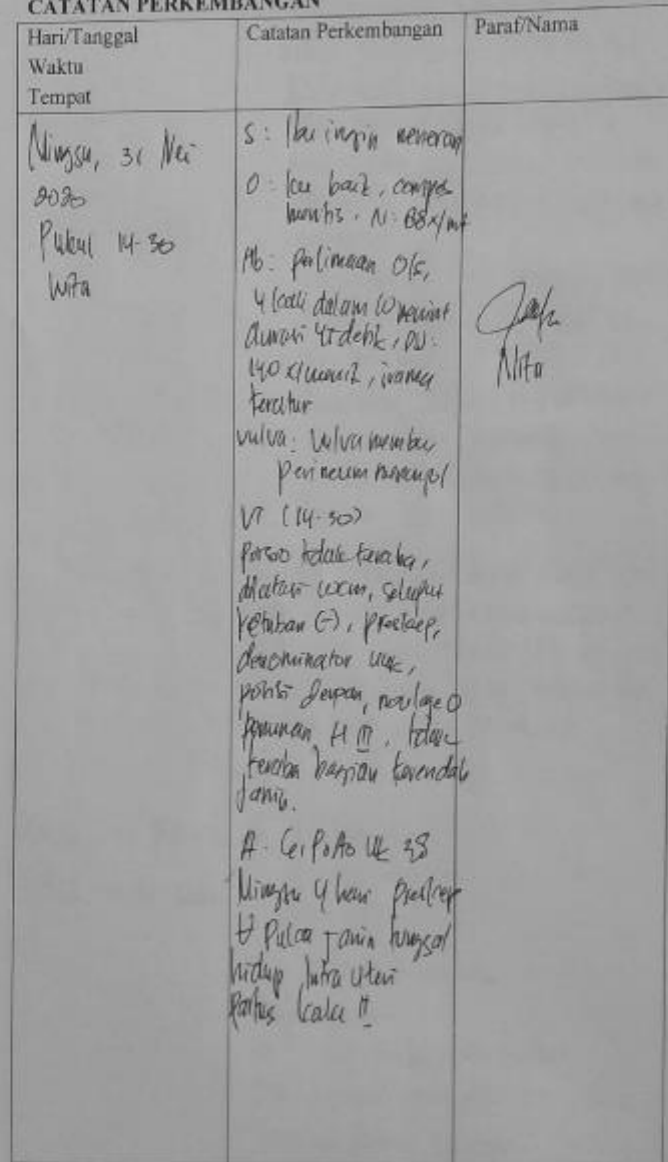 CATATAN PERKEMBANGAN
Hari/Tanggal
Waktu
Tempat
Catatan Perkembangan
Paraf/Nama
Minggu, 31 Mei
2020
Pukul 14-30
Wita
S : Ibu ingin meneran
O : ku baik, compos
mentis. N: 88x/mt
Ab: perlimaan O/5,
4 kali dalam 10 menit
durasi 45 detik, DJJ:
140 x/menit, irama
teratur
vulva: Vulva membu
perineum menonjol
VT (14-30)
Porsio tidak teraba,
dilatasi 10cm, selaput
ketuban (-), preskep,
denominator UUK,
posisi depan, moulage O
penurunan H III, tidak
teraba bagian terendah
janin.
A - G1P0A0 UK 38
Minggu 4 hari preskep
U Puka janin tunggal
hidup Intra Uteri
Partus kala II
Nita